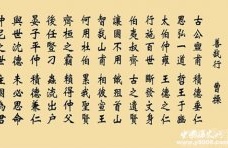 善哉行 曹操
古公亶甫 積德垂仁
思弘一道 哲王于豳
太伯仲雍 王德之仁
行施百世 斷髮文身
伯夷叔齊 古之遺賢
讓國不用 餓殂首山
智哉山甫 相彼宣王
何用杜伯 累我聖賢
齊桓之霸 賴得仲父
後任豎刁 蟲流出戶
晏子平仲 積德兼仁
與世沈德 未必思命
仲尼之世 主國為君